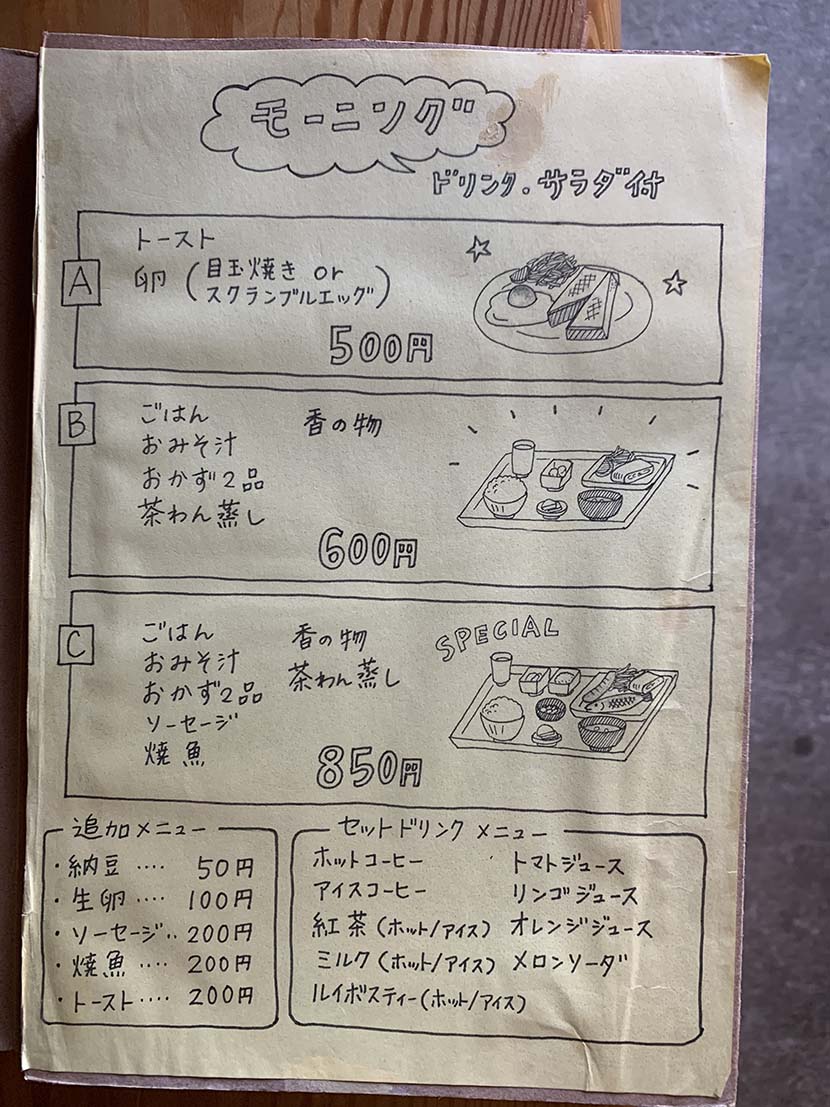 モーニング
ドリンク．サラダ付
A
トースト
卵（目玉焼き or
スクランブルエッグ）
500円
B
ごはん 香の物
おみそ汁
おかず2品
茶わん蒸し
600円
C
ごはん 香の物
おみそ汁 茶わん蒸し
おかず2品
ソーセージ
焼魚
850円
SPECIAL
追加メニュー
・納豆‥‥ 50円
・生卵‥‥ 100円
・ソーセージ‥200円
・焼魚‥‥ 200円
・トースト‥‥ 200円
セットドリンクメニュー
ホットコーヒー トマトジュース
アイスコーヒー リンゴジュース
紅茶（ホット/アイス） オレンジジュース
ミルク（ホット/アイス） メロンソーダ
ルイボスティー（ホット/アイス）